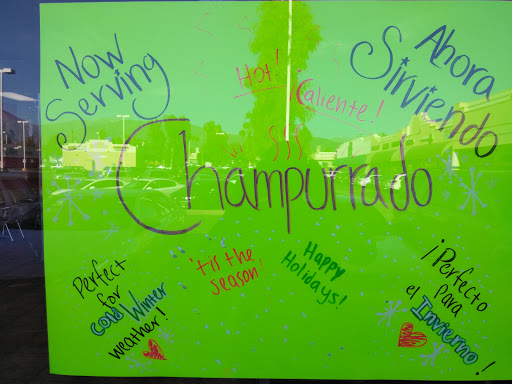 Now
Serving
Hot!
Caliente!
Ahora
Sirviendo
Champurrado
Perfect
for
Cold Winter
weather!
'tis the
season'
Happy
Holidays!
¡Perfecto
para
el Invierno!